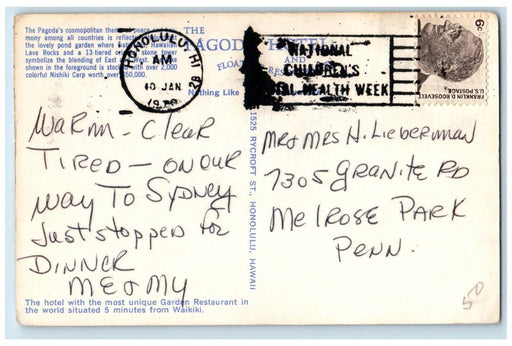 The Pagoda's cosmopolitan
mony among all countries is reflec
the lovely pond garden where
Lava Rocks and a 13-tiered stone tower
symbolize the blending of East
shown in the foreground is stock with over 2,000
colorful Nishiki Carp worth 50,000.
HONOLULU, HI
AM
10 JAN
THE
PAGODA HOTEL
FLOA
AND
RES
Nothing Like
NATIONAL
CHILDREN'S
HEALTH WEEK
6¢
FRANKLIN ROOSEVELT
U.S. POSTAGE
Warm - Clear
TIRED - ON OUR
way To SYDNEY
Just stopped for
DINNER
ME & MY
1525 RYCROFT ST., HONOLULU, HAWAII
Mr & Mrs H. Lieberman
7305 GRANITE RD
Melrose PARK
PENN.
The hotel with the most unique Garden Restaurant in
the world situated 5 minutes from Waikiki.
50